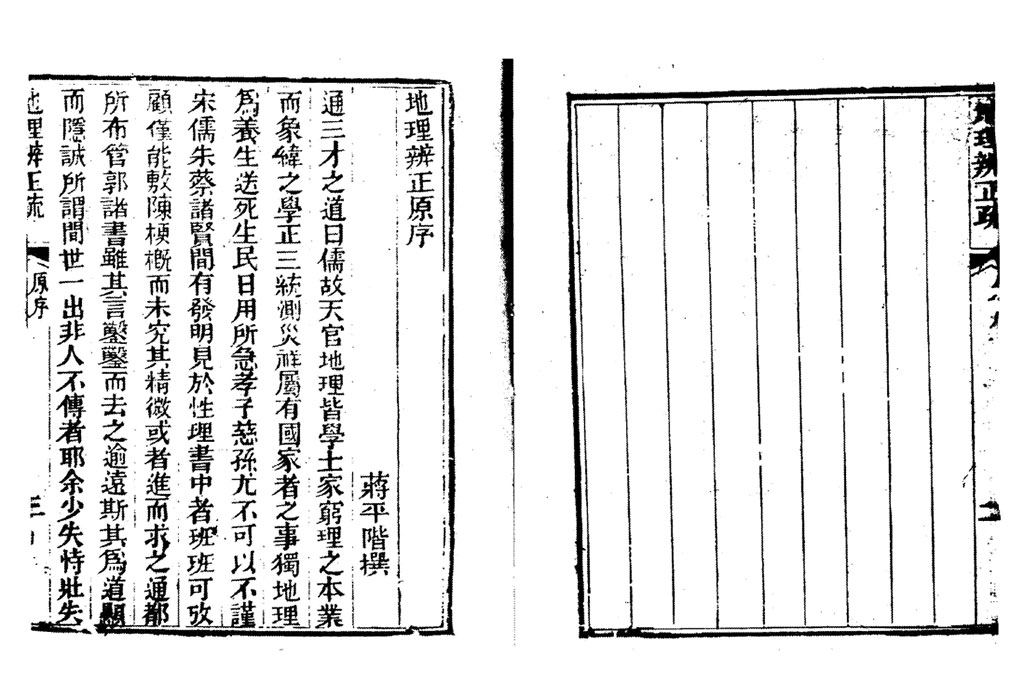 地理辨正疏
二
地理辨正原序
蔣平階撰
通三才之道曰儒故天官地理皆學士家窮理之本業
而象緯之學正三統測災祥屬有國家者之事獨地理
爲養生送死生民日用所急孝子慈孫尤不可以不謹
宋儒朱蔡諸賢間有發明見於性理書中者班班可攷
顧僅能敷陳梗概而未究其精微或者進而求之通都
所布管郭諸書雖其言鑿鑿而去之逾遠斯其爲道顯
而隱誠所謂間世一出非人不傳者耶余少失恃壯失
地理辨正疏
原序
三